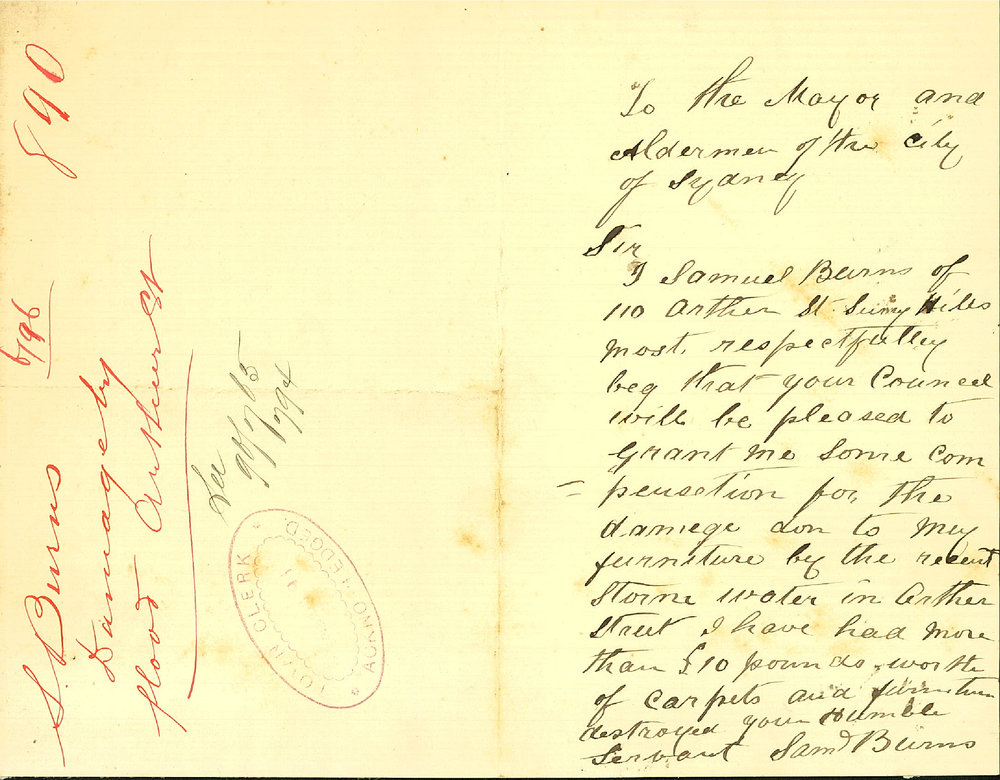 890
6/96
S. Burns
Damage by
flood Arthur St
See
1794
TOWN CLERK
ACKNOWLEDGED
To the Mayor and
Aldermen of the City
of Sydney
Sir
I Samuel Burns of
110 Arther St. Surry Hills
most respectfully
beg that your Council
will be pleased to
grant me some com
= pensetion for the
damege don to mey
furniture by the recent
Storme water in Arther
Street I have had more
than £10 pounds worth
of carpets and furniture
destroyed your Humble
Servant Samd Burns